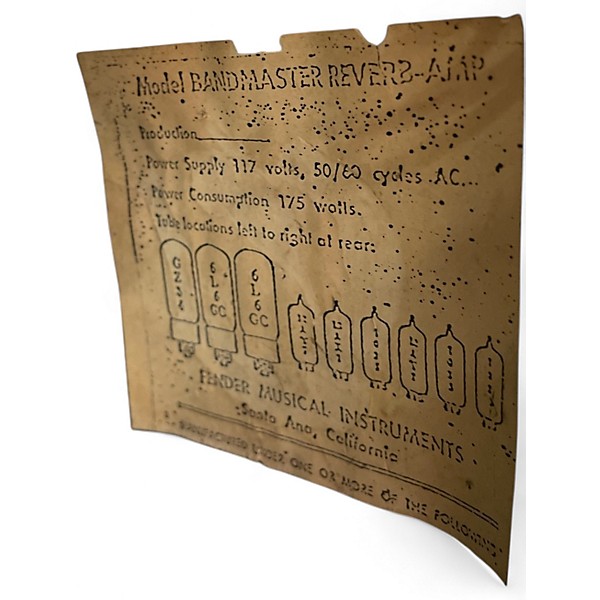 Model BANDMASTER REVERB-AMP
Production
Power Supply 117 volts, 50/60 cycles AC.
Power Consumption 175 watts.
Tube locations left to right at rear:
GZ34 6L6GC 6L6GC
FENDER MUSICAL INSTRUMENTS
Santa Ana, California
MANUFACTURED UNDER ONE OR MORE OF THE FOLLOWING